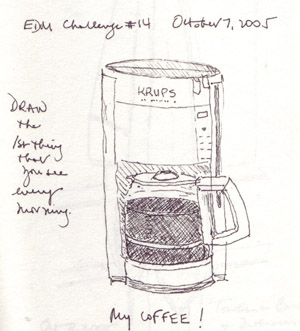 EDM Challenge #14 October 7, 2005
KRUPS
DRAW
the
1st thing
that
you see
every
morning.
My COFFEE!